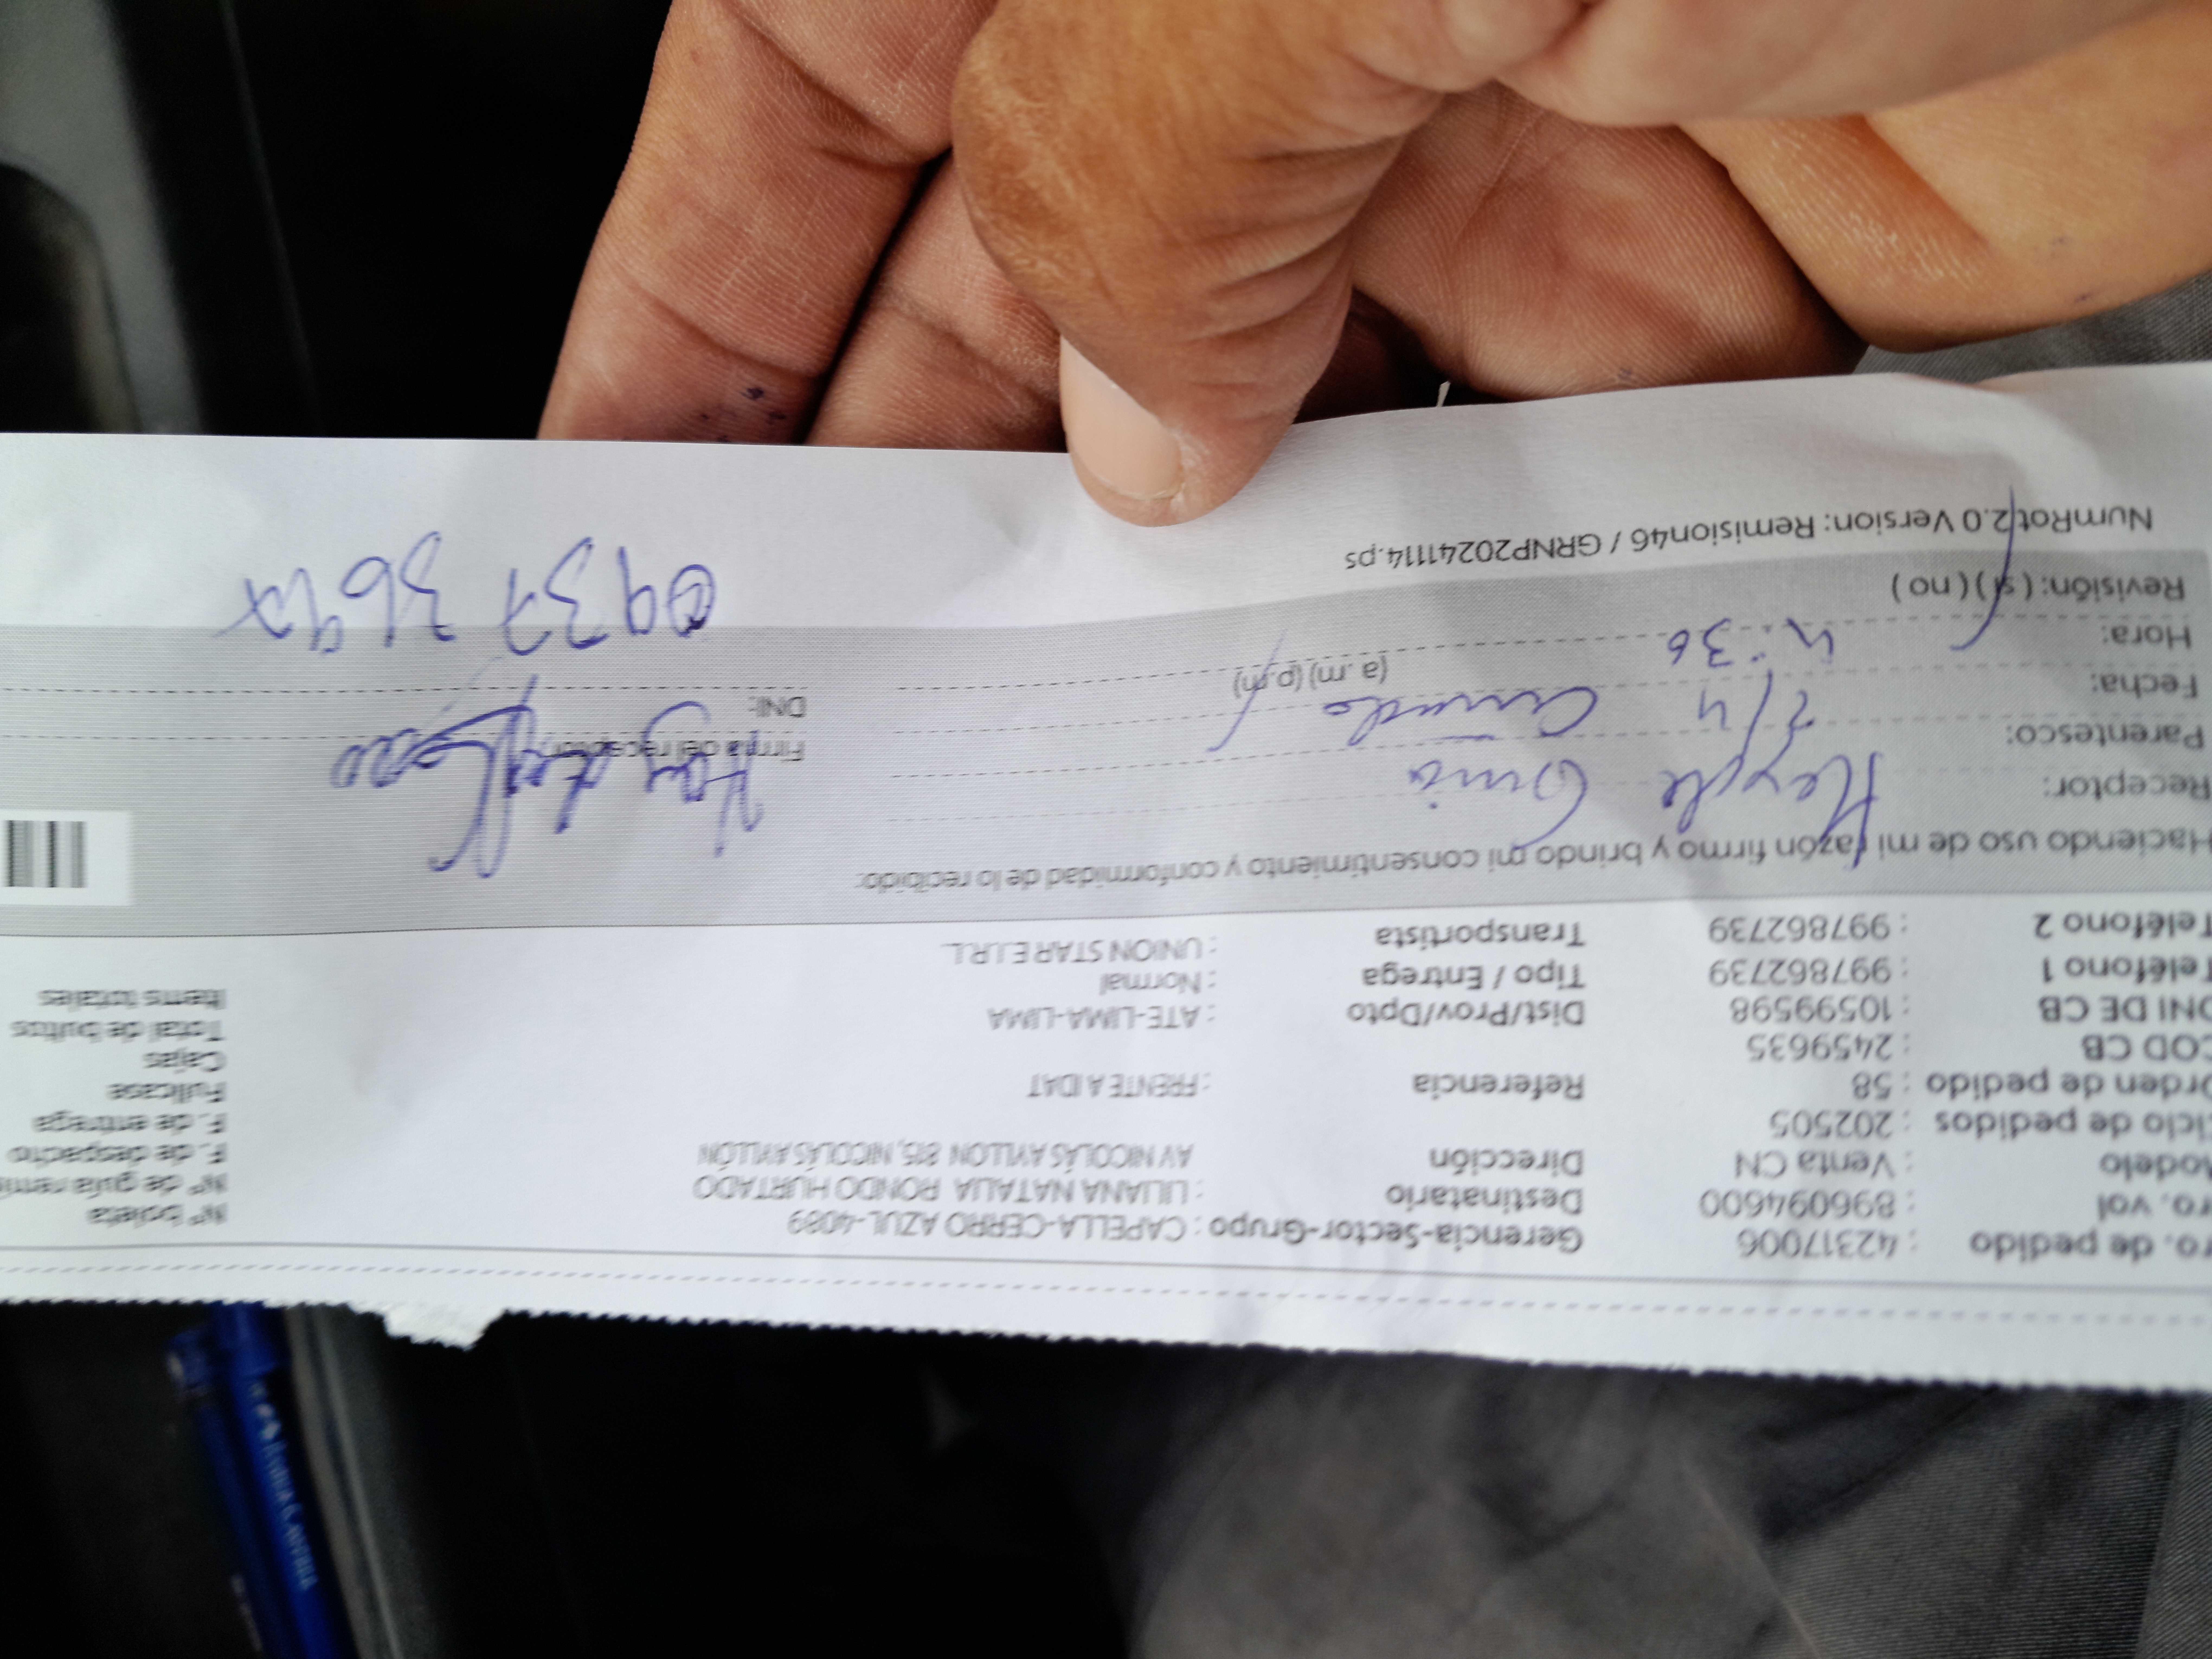 ro. de pedido : 42317006 Gerencia-Sector-Grupo : CAPELLA-CERRO AZUL-4089 N° boleta
ro. vol : 896094600 Destinatario : LILIANA NATALIA RONDO HURTADO N° de guía remi
Modelo : Venta CN Dirección AV NICOLÁS AYLLON 815, NICOLÁS AYLLÓN F. de despacho
Ciclo de pedidos : 202505 F. de entrega
Orden de pedido : 58 Referencia : FRENTE A IDAT Fullcase
COD CB : 2459635 Cajas
DNI DE CB : 10599598 Dist/Prov/Dpto : ATE-LIMA-LIMA Total de bultos
Teléfono 1 : 997862739 Tipo / Entrega : Normal Items totales
Teléfono 2 : 997862739 Transportista : UNION STAR E.I.R.L.
Haciendo uso de mi razón firmo y brindo mi consentimiento y conformidad de lo recibido:
Receptor:
Firma del receptor:
Parentesco:
DNI:
Fecha: 2/4
Hora: 4:36 (a.m) (p.m)
0937369
Revisión: ( si ) ( no )
NumRot 2.0 Version: Remision46 / GRNP20241114.ps